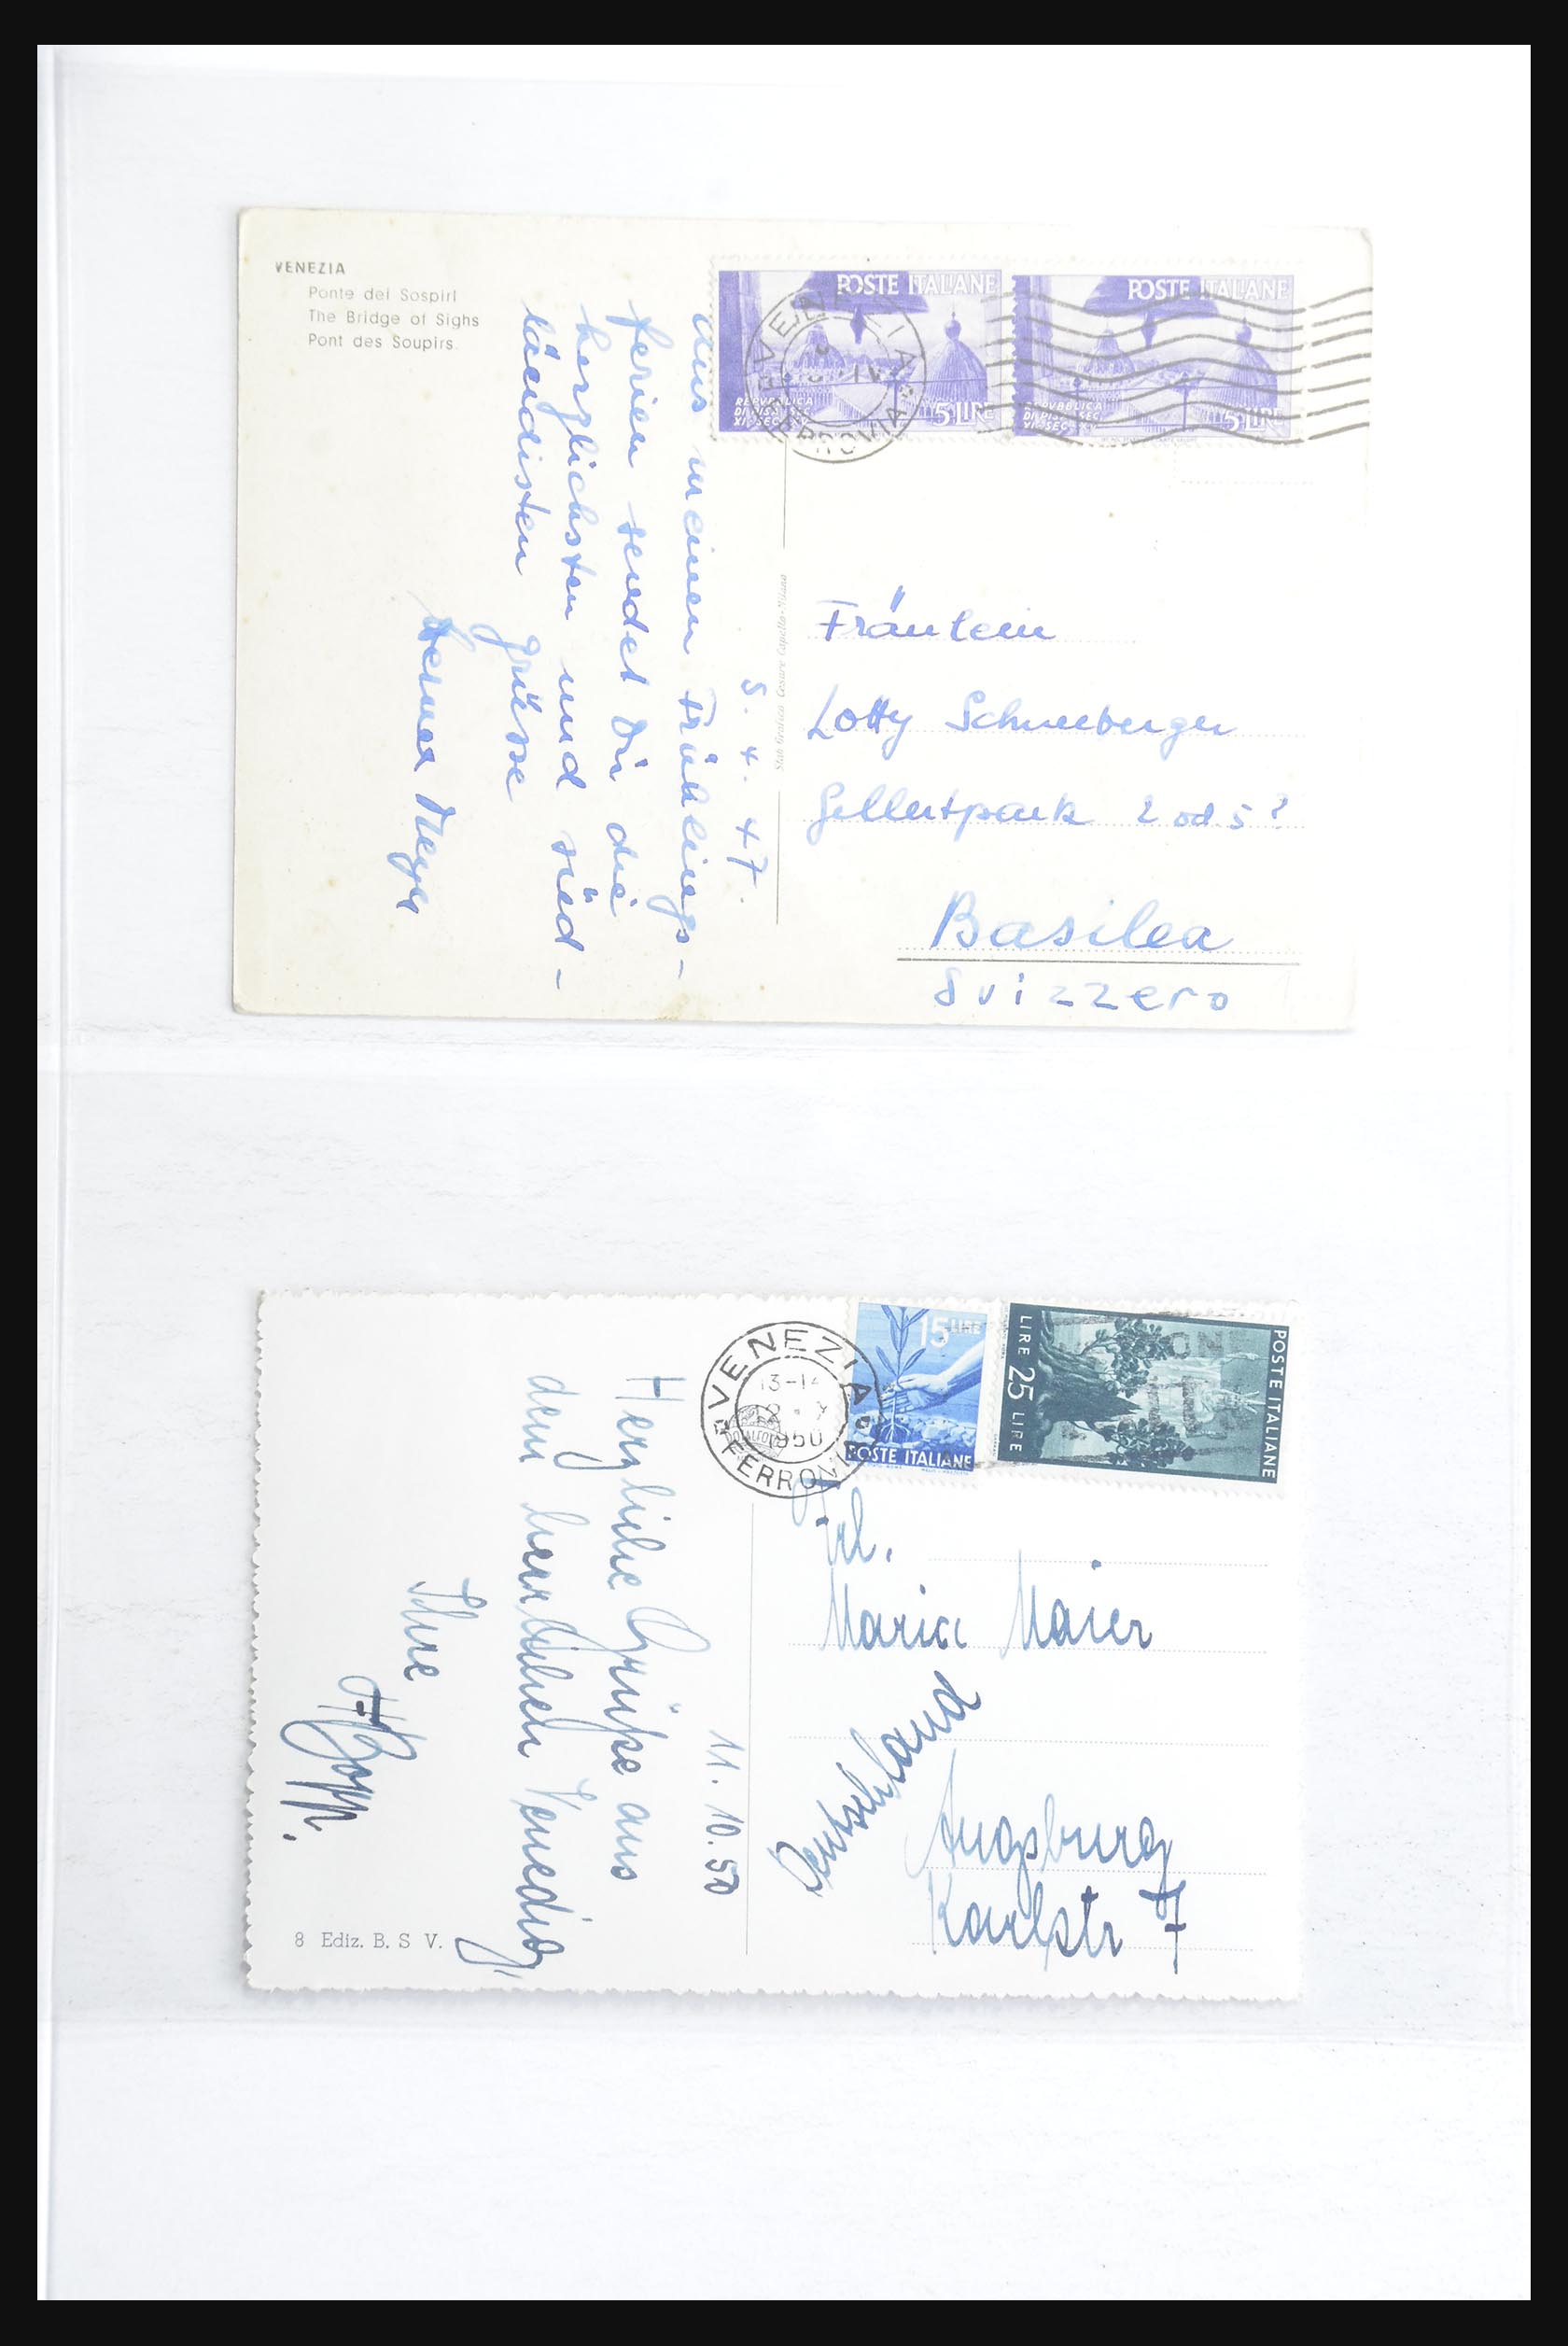 VENEZIA
Ponte dei Sospiri
The Bridge of Sighs
Pont des Soupirs.
POSTE ITALIANE
REPVBBLICA
DI PISA SEC
XI. SEC. XV
5 LIRE
POSTE ITALIANE
REPVBBLICA
DI PISA SEC
XI. SEC. XV
5 LIRE
VENEZIA
FERROVIA
5. 4. 47.
Aus meinen Frühlings-
ferien sendet Dir die
herzlichsten und süd-
ländisten Grüsse
Meyer
Stab Grafico Cesare Capello-Milano
Fräulein
Lotty Schneeberger
Gellertpark 2 od 5?
Basilea
Svizzero
VENEZIA
13-14
1950
FERROVIA
15 LIRE
POSTE ITALIANE
LIRE 25 LIRE
POSTE ITALIANE
11. 10. 50
Herzliche Grüße aus
dem herrlichen Venedig
Ihre
8 Ediz. B. S V.
Frl.
Maria Maier
Augsburg
Karlstr 7
Deutschland